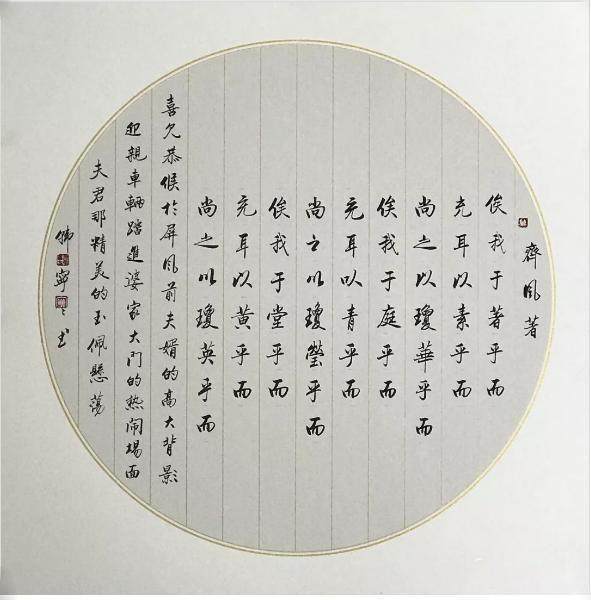 齊風著
俟我于著乎而
充耳以素乎而
尚之以瓊華乎而
俟我于庭乎而
充耳以青乎而
尚之以瓊瑩乎而
俟我于堂乎而
充耳以黃乎而
尚之以瓊英乎而
喜久恭候於屏風前夫婿的高大背影
迎親車輛踏進婆家大門的熱闹場面
夫君那精美的玉佩懸蕩
寧